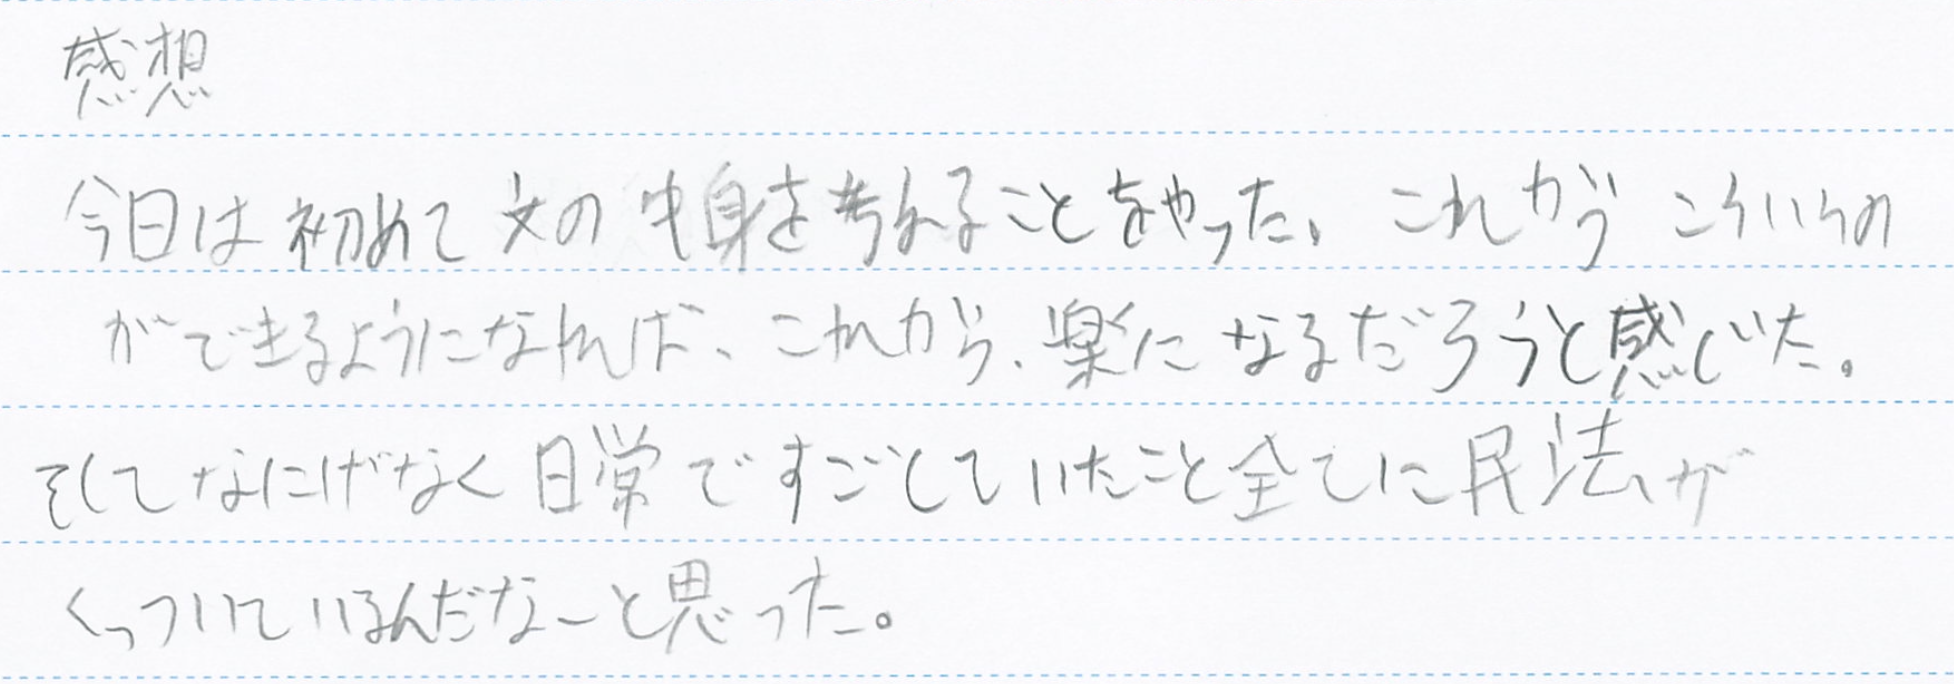 感想
今日は初めて文の中身を考えることをやった、これからこういうの
ができるようになれば、これから、楽になるだろうと感じいた。
そしてなにげなく日常ですごしていたこと全てに民法が
くっついているんだなーと思った。